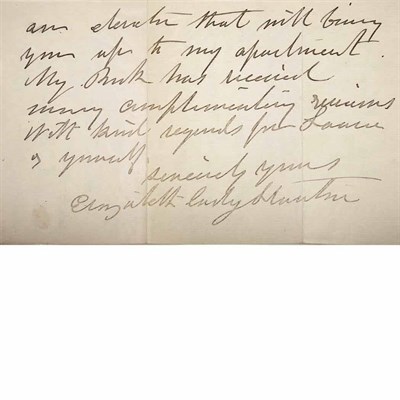 an elevator that will bring
you up to my apartment.
My Book has received
many complimentary reviews
With kind regards for
& yourself
sincerely yours
Elizabeth Cady Stanton